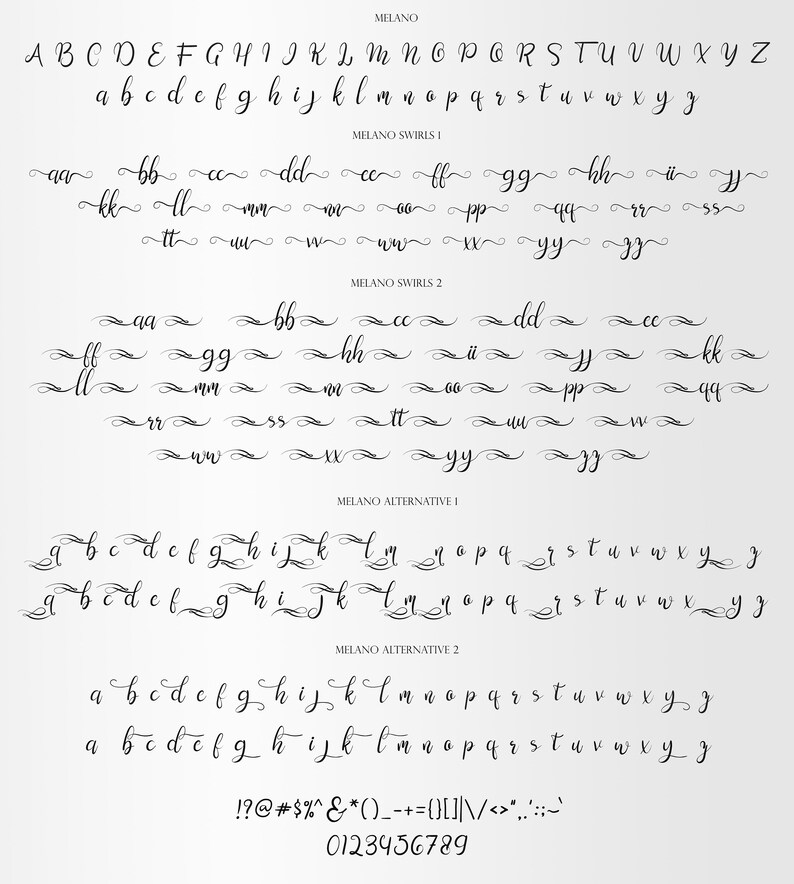 MELANO
A B C D E F G H I J K L M N O P Q R S T U V W X Y Z
a b c d e f g h i j k l m n o p q r s t u v w x y z
MELANO SWIRLS 1
aa bb cc dd ee ff gg hh ii jj
kk ll mm nn oo pp qq rr ss
tt uu vv ww xx yy zz
MELANO SWIRLS 2
aa bb cc dd ee
ff gg hh ii jj kk
ll mm nn oo pp qq
rr ss tt uu vv
ww xx yy zz
MELANO ALTERNATIVE 1
a b c d e f g h i j k l m n o p q r s t u v w x y z
a b c d e f g h i j k l m n o p q r s t u v w x y z
MELANO ALTERNATIVE 2
a b c d e f g h i j k l m n o p q r s t u v w x y z
a b c d e f g h i j k l m n o p q r s t u v w x y z
!?@#$%^&*()_-+={}[]|\/<>",.':;~`
0123456789